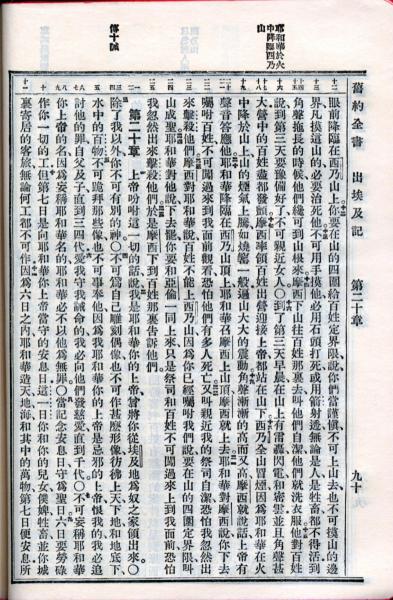 舊約全書 出埃及記 第二十章 九十
耶和華於火
中降臨西乃
山
眼前降臨在西乃山上你要在山的四圍給百姓定界限說你們當謹慎不可上山去也不可摸山的邊
界凡摸這山的必要治死他不可用手摸他必用石頭打死或用箭射透無論是人是牲畜都不得活到
角聲拖長的時候他們纔可到山根來摩西下山往百姓那裏去叫他們自潔他們就洗衣服他對百姓
說到第三天要豫備好了不可親近女人○到第三天早晨在山上有雷轟閃電和密雲並且角聲甚
大營中的百姓盡都發顫摩西率領百姓出營迎接上帝都站在山下西乃全山冒煙因為耶和華在火
中降於山上山的煙氣上騰如燒窰一般遍山大大的震動角聲漸漸的高而又高摩西就說話上帝有
聲音答應他耶和華降臨在西乃山頂上耶和華召摩西上山頂摩西就上去耶和華對摩西說你下去
囑咐百姓不可闖過來到我面前觀看恐怕他們有多人死亡又叫親近我的祭司自潔恐怕我忽然出
來擊殺他們摩西對耶和華說百姓不能上西乃山因為你已經囑咐我們說要在山的四圍定界限叫
山成聖耶和華對他說下去罷你要和亞倫一同上來只是祭司和百姓不可闖過來上到我面前恐怕
我忽然出來擊殺他們於是摩西下到百姓那裏告訴他們
傳十誡
第二十章 上帝吩咐這一切的話說我是耶和華你的上帝曾將你從埃及地為奴之家領出來○
除了我以外你不可有別的神○不可為自己雕刻偶像也不可作甚麼形像彷彿上天下地和地底下
水中的百物不可跪拜那些像也不可事奉他因為我耶和華你的上帝是忌邪的上帝恨我的我必追
討他的罪自父及子直到三四代愛我守我誡命的我必向他們發慈愛直到千代○不可妄稱耶和華
你上帝的名因為妄稱耶和華名的耶和華必不以他為無罪○當記念安息日守為聖日六日要勞碌
作你一切的工但第七日是向耶和華你上帝當守的安息日這一日你和你的兒女僕婢牲畜並你城
裏寄居的客旅無論何工都不可作因為六日之內耶和華造天地海和其中的萬物第七日便安息所